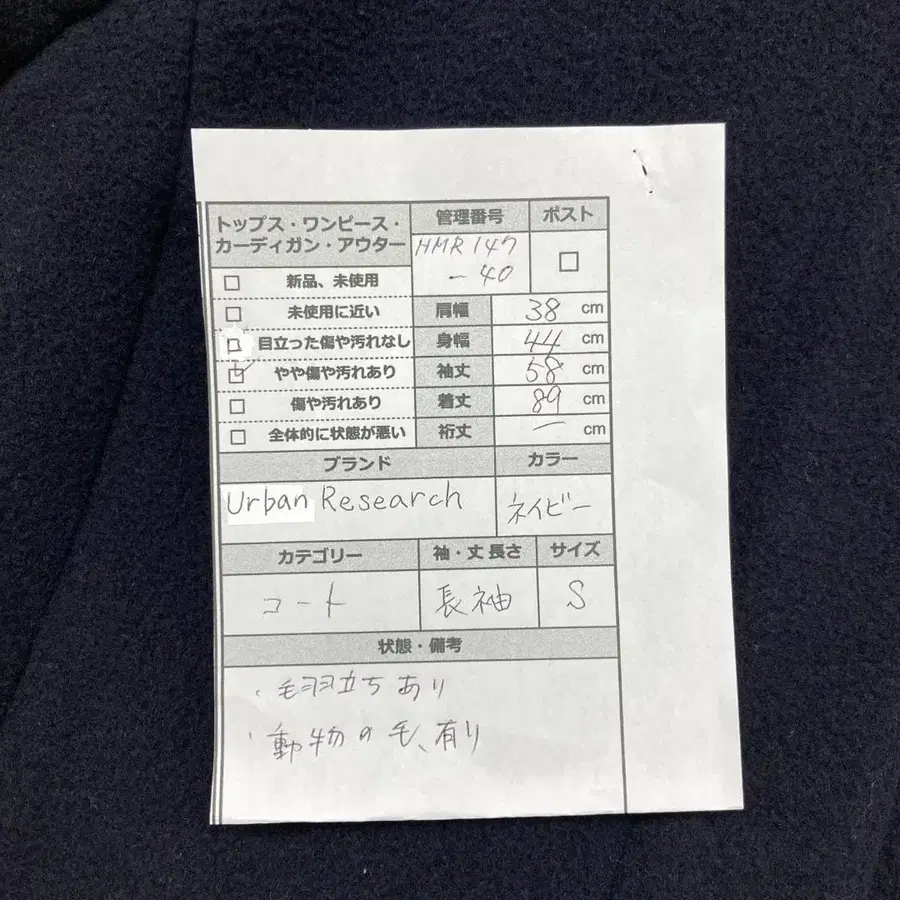 トップス・ワンピース・
カーディガン・アウター
管理番号
ポスト
HMR 147
- 40
□
□ 新品、未使用
□ 未使用に近い
□ 目立った傷や汚れなし
☑ やや傷や汚れあり
□ 傷や汚れあり
□ 全体的に状態が悪い
肩幅 38 cm
身幅 44 cm
袖丈 58 cm
着丈 89 cm
裄丈 — cm
ブランド
カラー
Urban Research
ネイビー
カテゴリー
袖・丈 長さ
サイズ
コート
長袖
S
状態・備考
・毛羽立ちあり
・動物の毛、有り